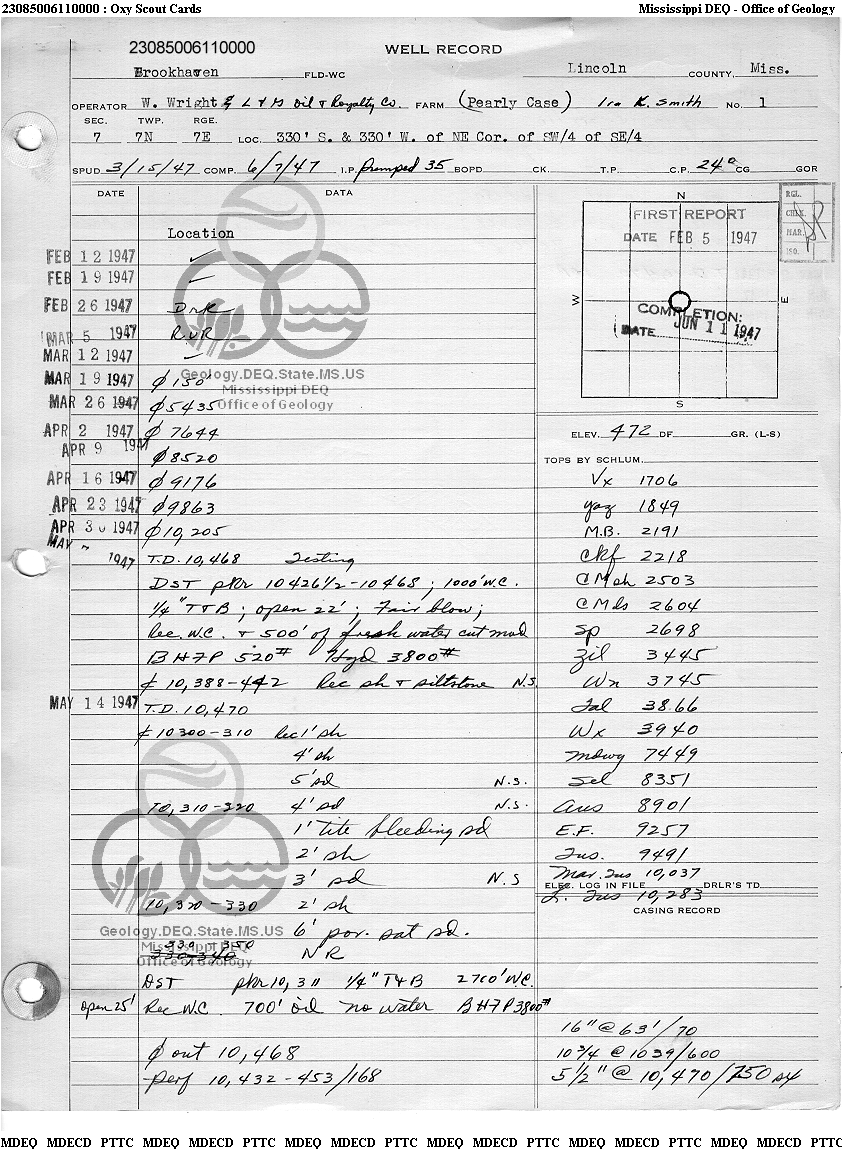 23085006110000 : Oxy Scout Cards Mississippi DEQ - Office of Geology
23085006110000 WELL RECORD
Brookhaven FLD-WC Lincoln COUNTY, Miss.
OPERATOR W. Wright & L & G Oil & Royalty Co. FARM (Pearly Case) Ira K. Smith No. 1
SEC. TWP. RGE.
7 7N 7E LOC. 330' S. & 330' W. of NE Cor. of SW/4 of SE/4
SPUD 3/15/47 COMP. 6/7/47 I.P. Pumped 35 BOPD CK. T.P. C.P. 24° CG GOR
DATE DATA
Location
FEB 12 1947 ✓
FEB 19 1947 –
FEB 26 1947 DrK
MAR 5 1947 R.U.R.
MAR 12 1947 –
MAR 19 1947 ϕ 150'
MAR 26 1947 ϕ 5435
APR 2 1947 ϕ 7644
APR 9 1947 ϕ 8520
APR 16 1947 ϕ 9176
APR 23 1947 ϕ 9863
APR 30 1947 ϕ 10,205
MAY 7 1947 T.D. 10,468 Testing
DST pkr 10426 1/2-10468; 1000' W.C.
1/4" T & B; open 22'; Fair blow;
Rec. W.C. + 500' of fresh water cut mud
BHFP 520# Hyd 3800#
¢ 10,388-442 Rec sh & siltstone N.S.
MAY 14 1947 T.D. 10,470
¢ 10300-310 Rec 1' sh
4' sh
5' sd N.S.
10,310-320 4' sd N.S.
1' tite bleeding sd
2' sh
3' sd N.S
10,320-330 2' sh
6' por. sat sd.
330-350 NR
330-340
DST pkr 10,311 1/4" T & B 2700' W.C.
open 25' Rec W.C. 700' oil no water BHFP 3800#
ϕ out 10,468
perf 10,432-453/168
Geology.DEQ.State.MS.US
Mississippi DEQ
Office of Geology
Geology.DEQ.State.MS.US
Mississippi DEQ
Office of Geology
N
W E
S
RGL.
CHK.
MAR.
ISO.
FIRST REPORT
DATE FEB 5 1947
COMPLETION:
DATE JUN 11 1947
ELEV. 472 DF. GR. (L-S)
TOPS BY SCHLUM.
Vx 1706
yaz 1849
M.B. 2191
Ckf 2218
CM sh 2503
C Mds 2604
Sp 2698
Zil 3445
Wx 3745
Tal 3866
Wx 3940
Mdwy 7449
Sel 8351
Aus 8901
E.F. 9257
Tus. 9491
Mar. Tus 10,037
ELEC. LOG IN FILE DRLR'S TD
L. Tus 10,283
CASING RECORD
16" @ 63'/70
10 3/4 @ 1039/600
5 1/2" @ 10,470/750 sx
MDEQ MDECD PTTC MDEQ MDECD PTTC MDEQ MDECD PTTC MDEQ MDECD PTTC MDEQ MDECD PTTC MDEQ MDECD PTTC